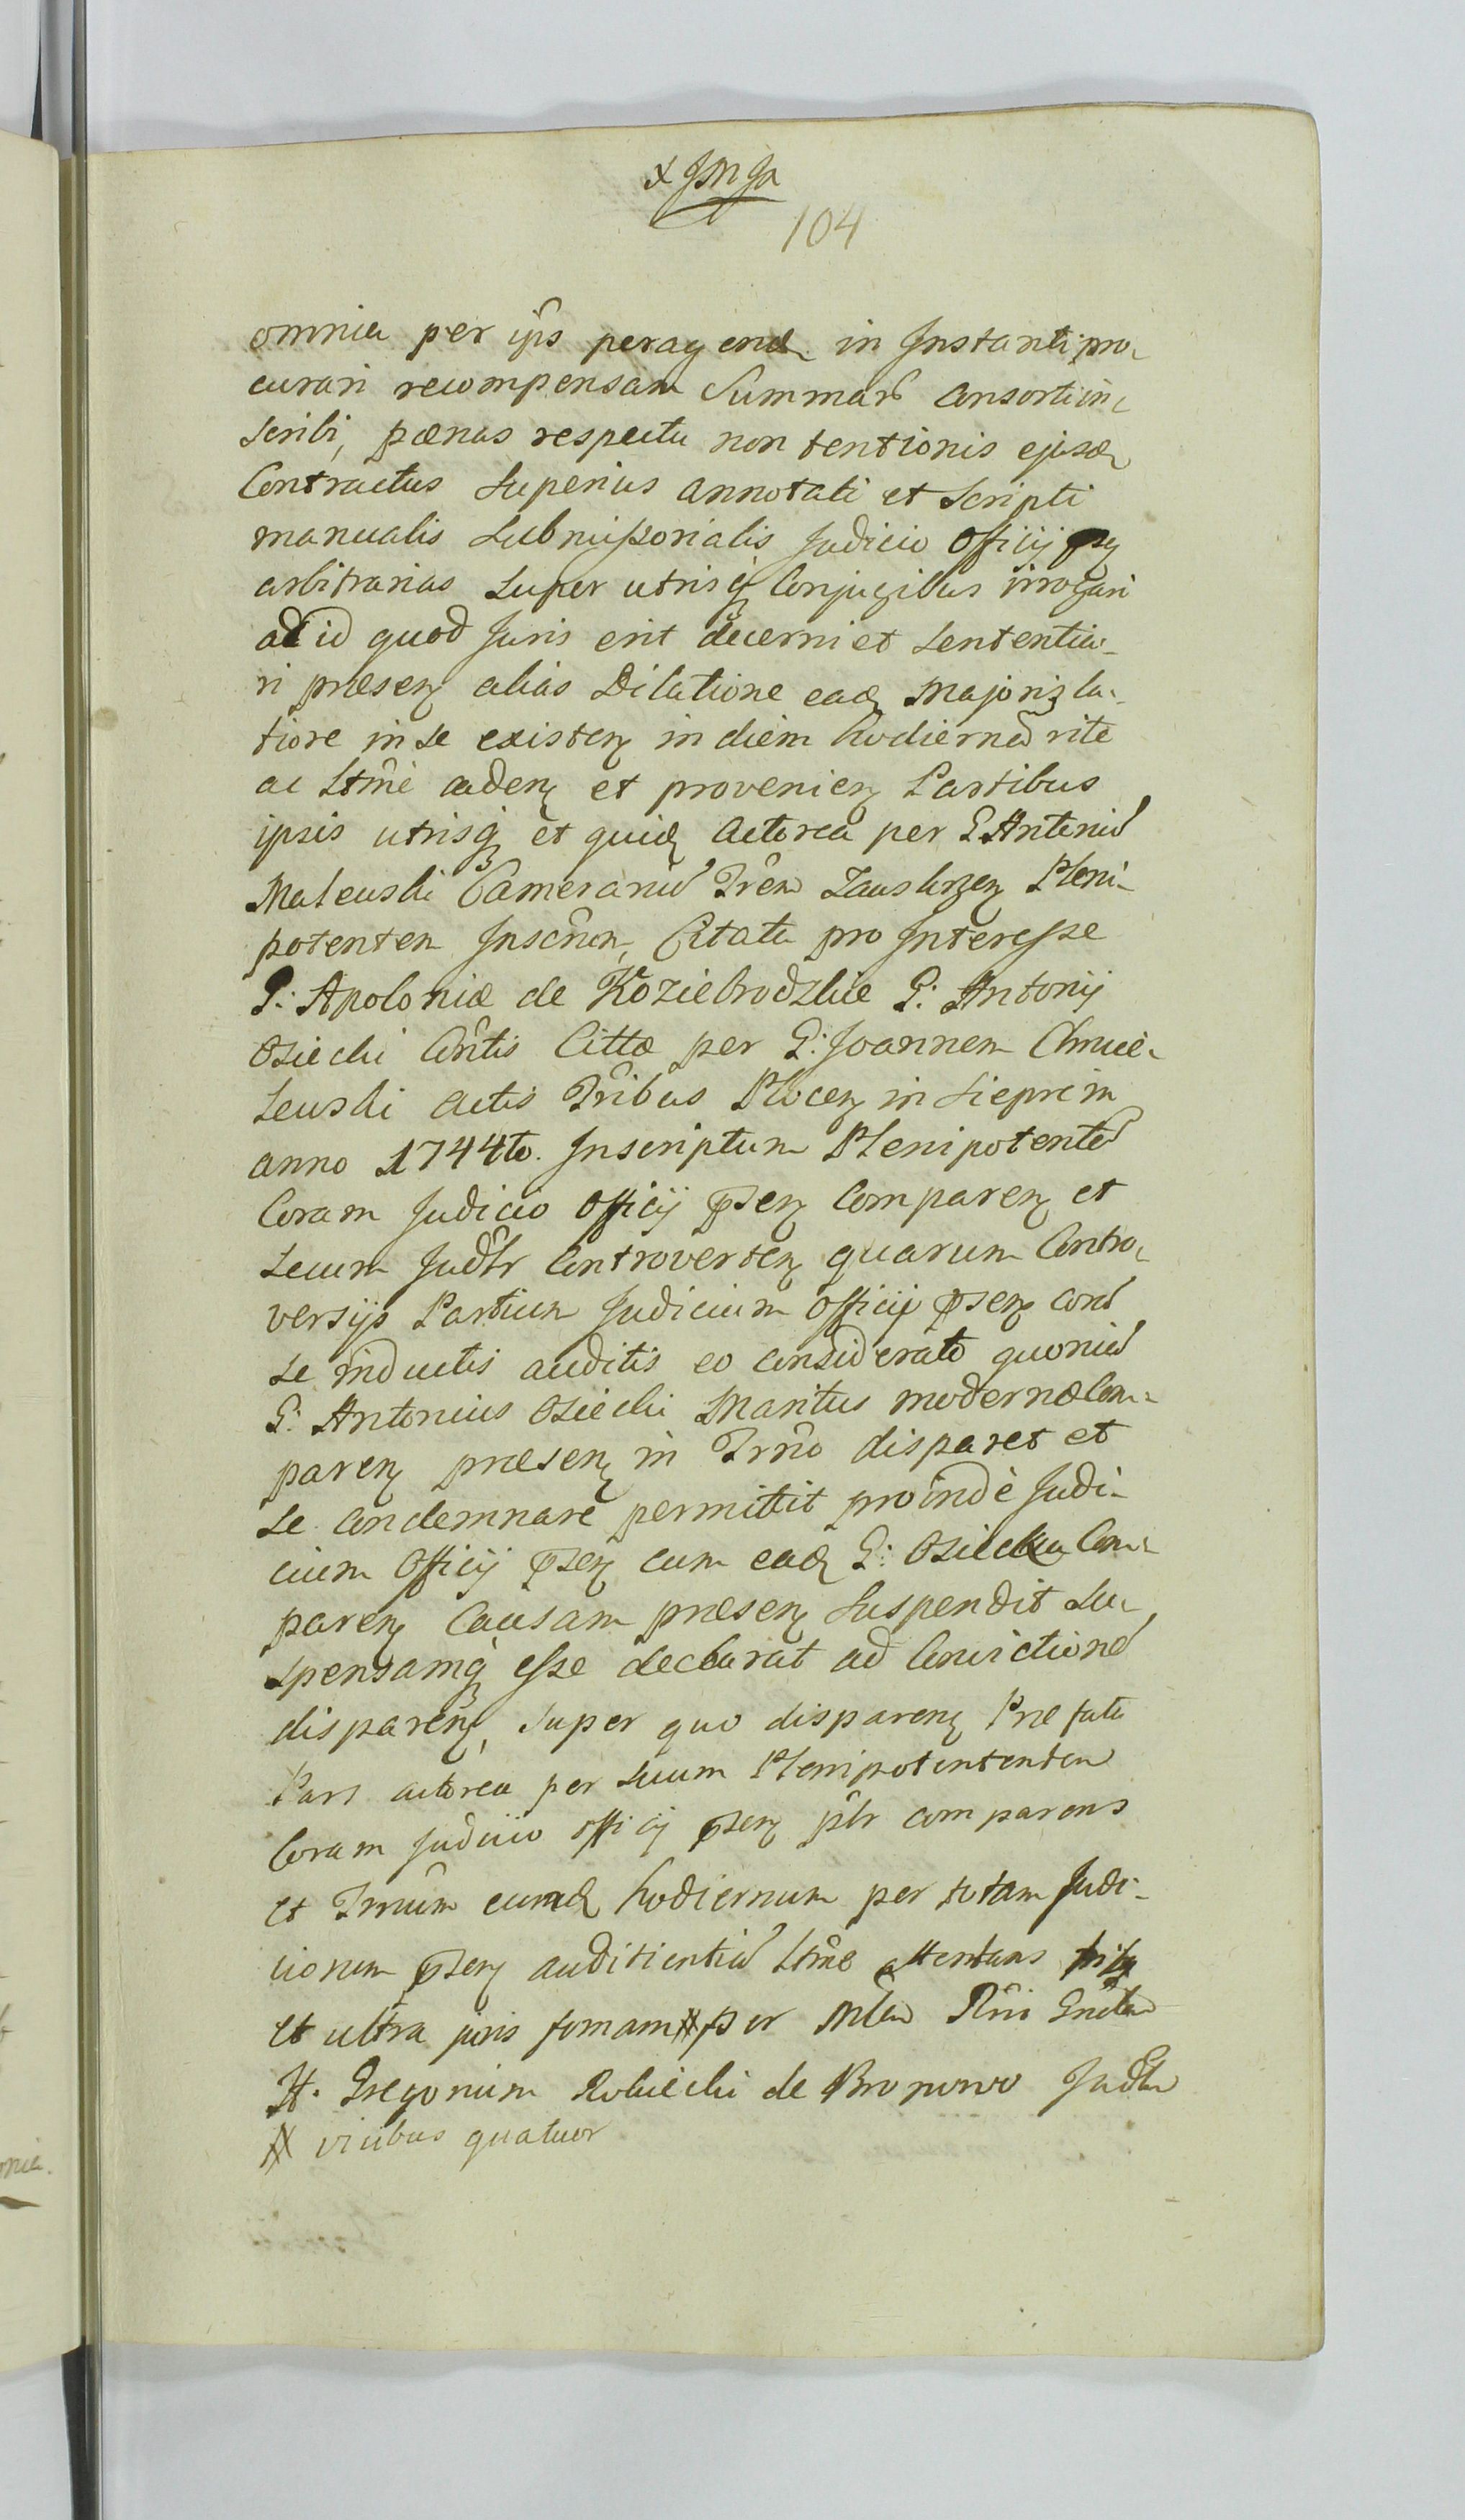 104
omnia per ips peragend in Instanti pro-
curari recompensam Summarũ Consorti in-
scribi, pænas respectu non tentionis ejusd
Contractus superius annotati et scripti
manualis Submissorialis Judicio Officij
arbitrarias super utrisq Conjugibus irrogari
ad id quod Juris erit decerni et sententia-
ri præsen alias Dilatione ead Majori la-
tiore in se existen in diem hodiernũ rite
ac ltmè caden et provenien Partibus
ipsis utrisq et quid Actorea per G Antoniũ
Mateuski Camerariũ Trem Zauskrzen Pleni-
potentem Inscrem, Citata pro Interesse
G: Apoloniæ de Koziebrodzkie G: Antonij
Osiecki Contis Citta per G: Joannem Chmie-
leuski Actis Tribus Plocen in Sieprcin
anno 1744to. Inscriptum Plenipotentẽ
Coram Judicio Officij psen Comparen et
secum Judlr Controverten quarum Contro-
versijs Partium Judicium Officij psen corã
se inductis auditis eo considerato quoniã
G: Antonius Osiecki Maritus modernæ Com-
paren præsen in Trno disparet et
se Condemnare permittit proinde Judi-
cium Officij psen cum ead G: Osiecka Com-
paren Causam præsen Suspendit su-
spensamq esse declarat ad Convictionẽ
disparen, super quo disparen Præfata
Pars actorea per suum Plenipotententem
Coram Judicio officij psen plr comparens
et Trnum eumd hodiernum per totam Judi-
ciorum psen auditientiã ltme attentans
et ultra juris formam # per Mlem Rni Gnlem
H. Gregorium Rokicki de Bromowo Judlr
# vicibus quatuor